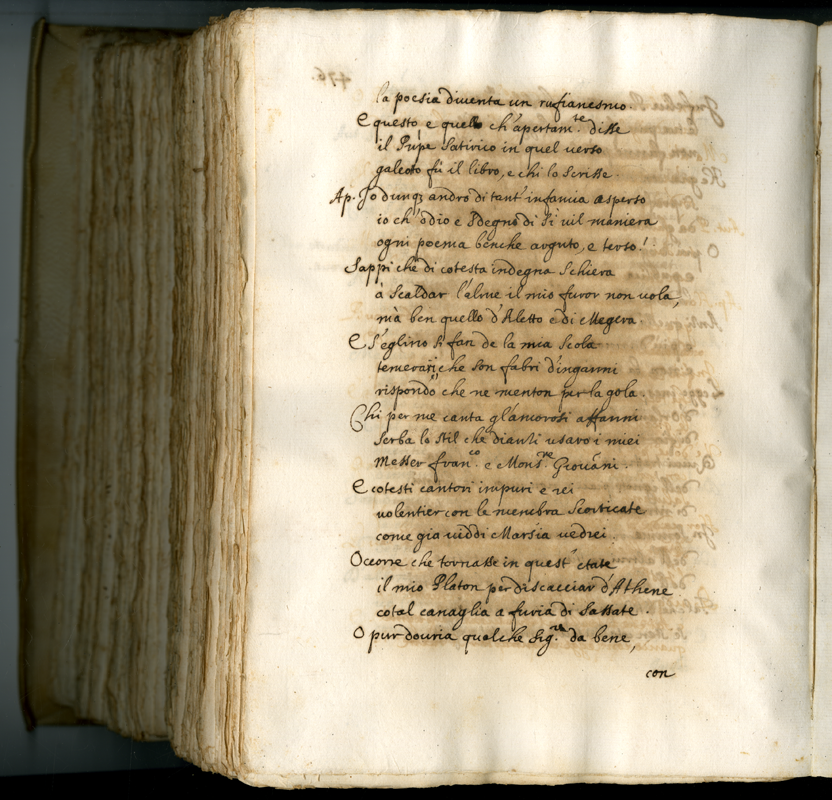 la poesia diventa un rufianesmo.
E questo e quello ch'apertam.te disse
il Satirico in quel verso
galeoto fù il libro, e chi lo scrisse.
Ap. Io dunq; andro di tant' infamia asperso
io ch'odio e sdegno di sì vil maniera
ogni poema benche arguto, e terso!
Sappi che di cotesta indegna schiera
à scaldar l'alme il mio furor non vola,
mà ben quello d'Aletto e di Megera.
E s'eglino si fan de la mia scola
temerarij che son fabri d'inganni
rispondo che ne menton per la gola
Chi per me canta gl'amorosi affanni
serba lo stil che dianti usaro i miei
Messer Fran.co e Mons.re Giovãni.
E cotesti cantori impuri e rei
volentier con le membra scorticate
come gia viddi Marsia vedrei.
Ocorre che tornasse in quest' etate
il mio Platon per discacciar d'Athene
cotal canaglia a furia di sassate.
O pur dovria qualche Sig.re da bene,
con
476.